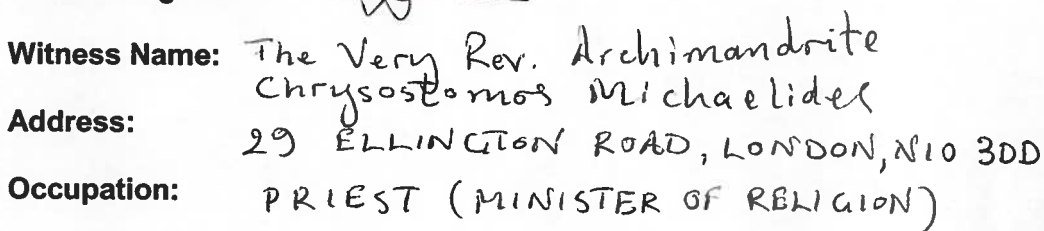 Witness Name: The Very Rev. Archimandrite
Chrysostomos Michaelides
Address:
29 ELLINGTON ROAD, LONDON, N10 3DD
Occupation: PRIEST (MINISTER OF RELIGION)